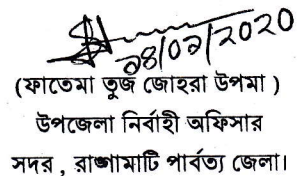 ২৪/০২/২০২০
(ফাতেমা তুজ জোহরা উপমা )
উপজেলা নির্বাহী অফিসার
সদর , রাঙ্গামাটি পার্বত্য জেলা।